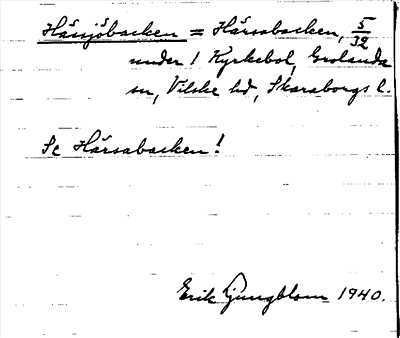 Härsjöbacken = Härsabacken, 5/32
under 1 Kyrkebol, Grolanda
sn, Vilske hd, Skaraborgs l.
Se Härsabacken!
Erik Ljungblom 1940.